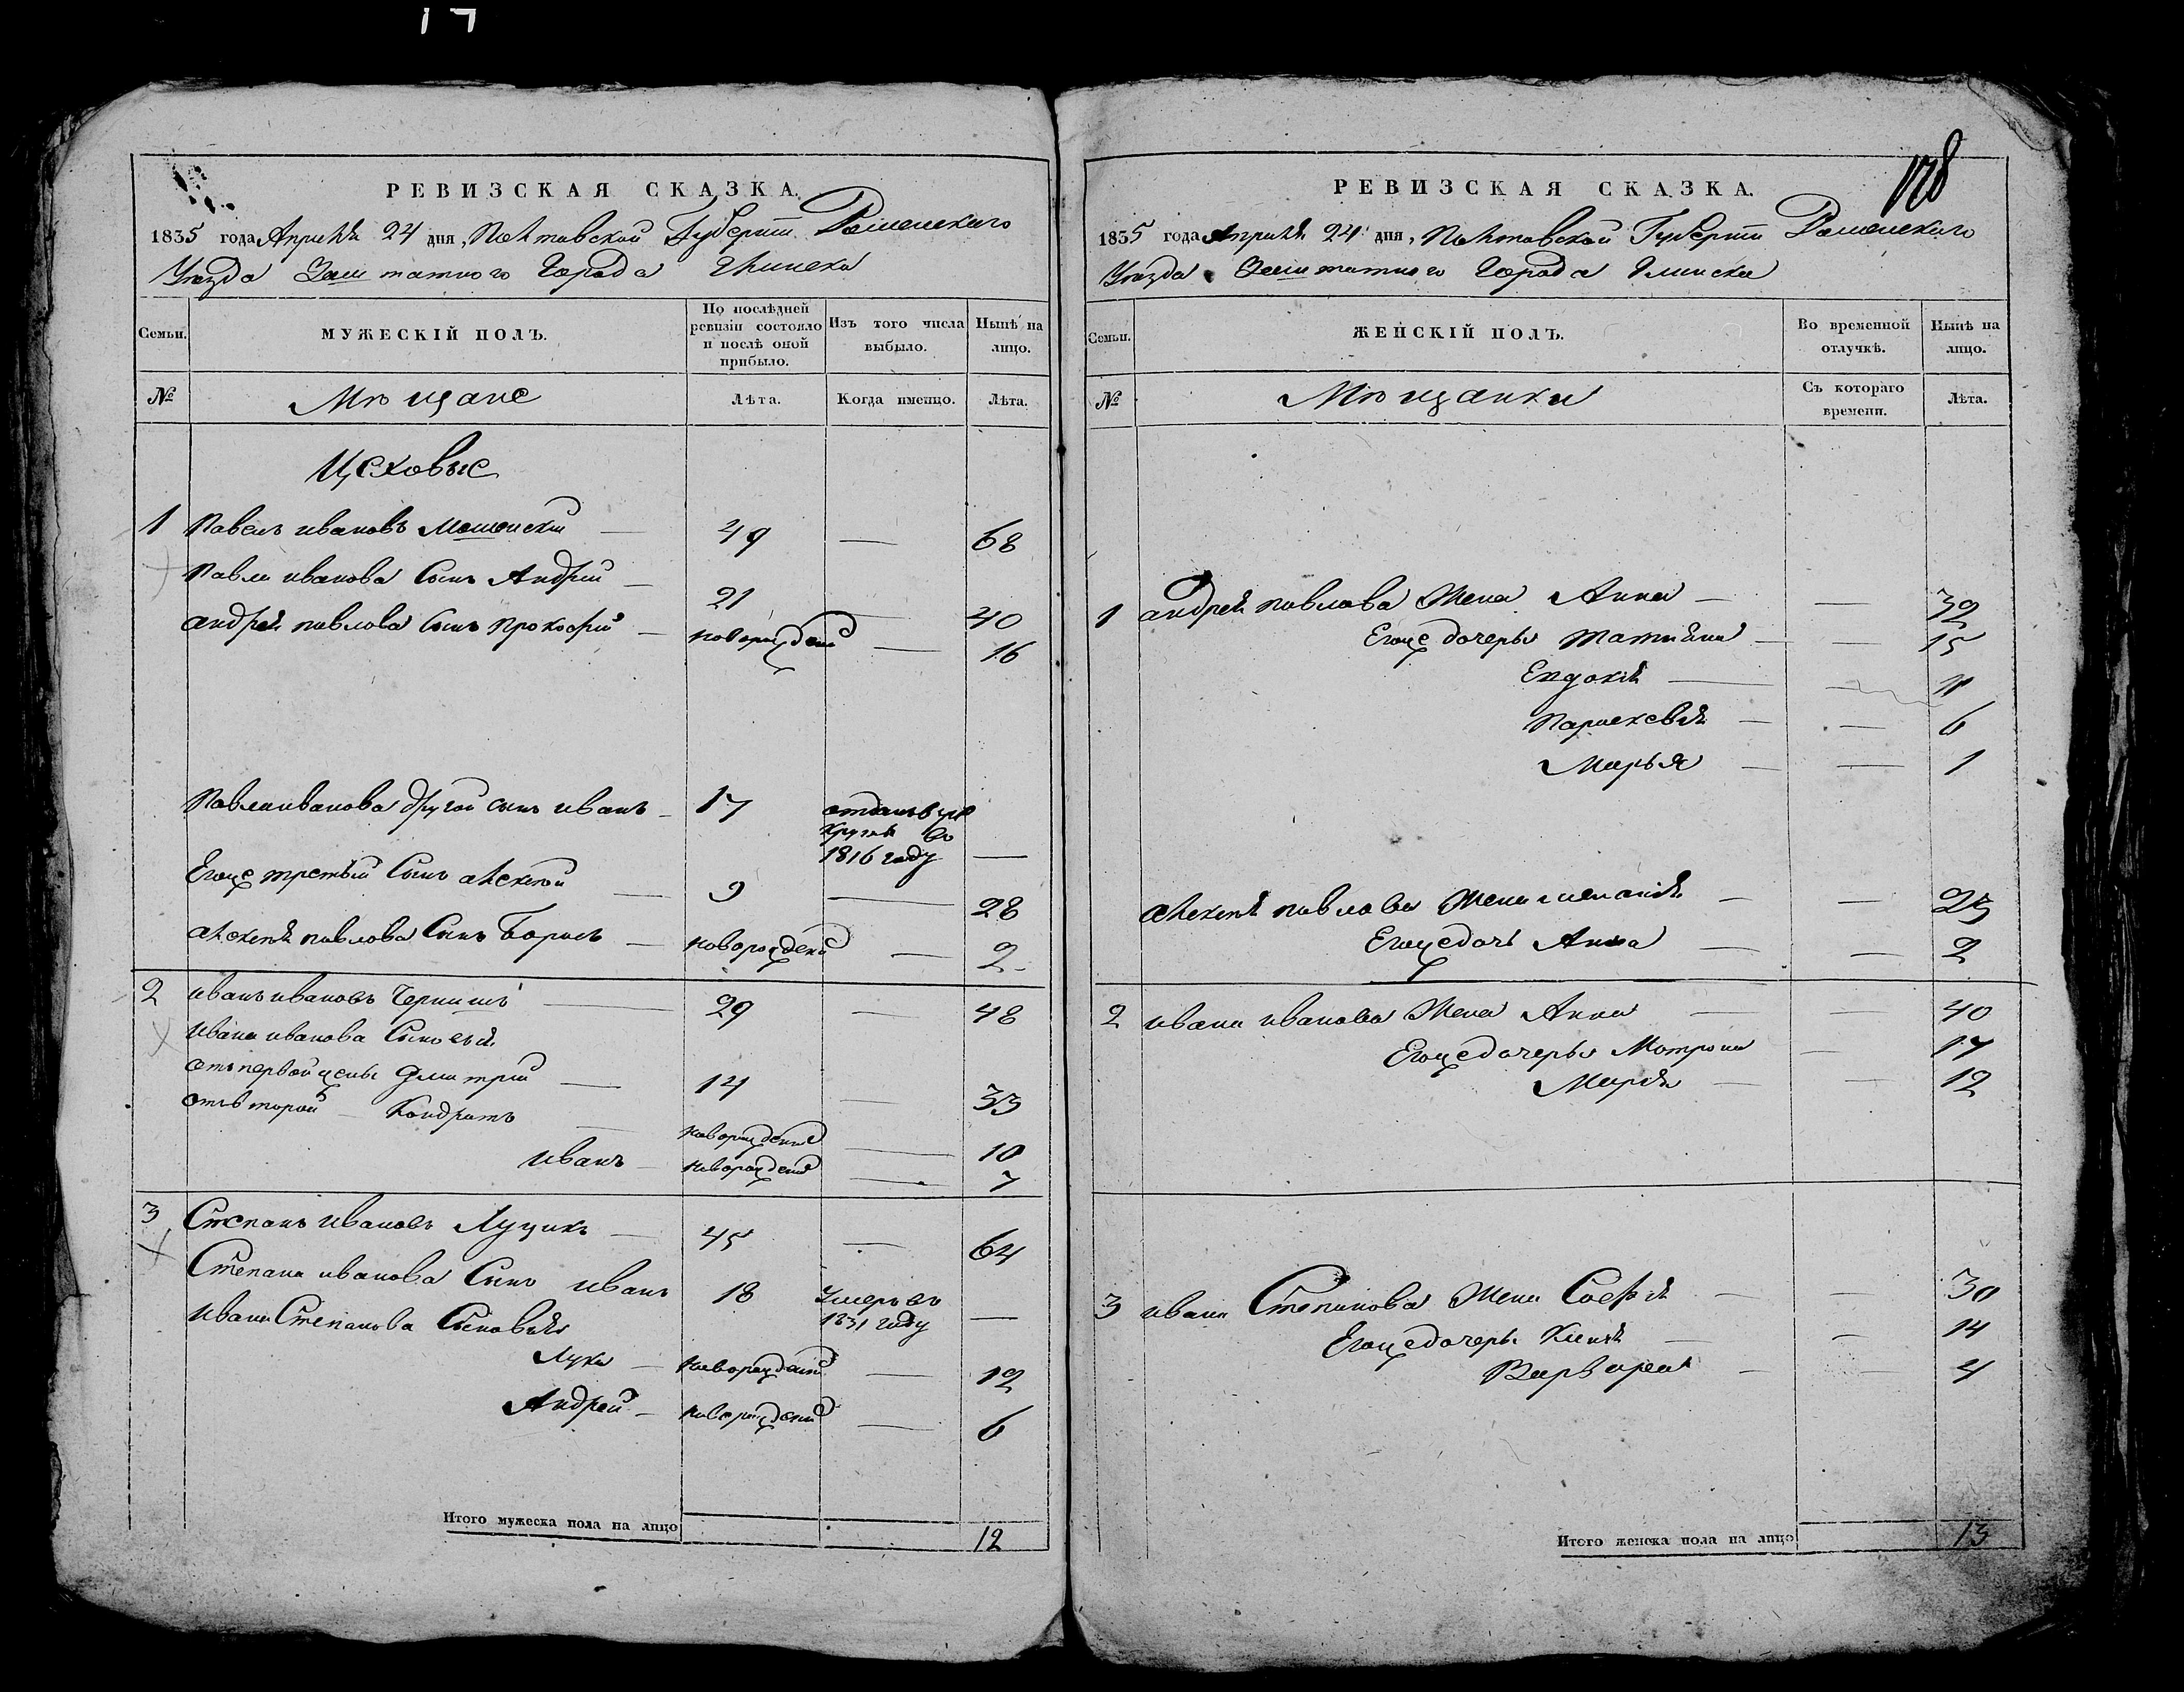 РЕВИЗСКАЯ СКАЗКА.
1835 года Апреля 24 дня, Полтавской Губернии Роменского
Уезда Заштатного Города Глинска
Семьи.
МУЖЕСКІЙ ПОЛЪ.
По послѣдней ревизіи состояло и послѣ оной прибыло.
Изъ того числа выбыло.
Нынѣ на лицо.
№
Мѣщане
Лѣта.
Когда именно.
Лѣта.
Цеховые
1 Павелъ ивановъ Мошенски — 49 — 68
Павла иванова Сынъ Андрей — 21 — 40
андрея павлова Сынъ Прокофий — новорожденъ — 16
Павла иванова другой сынъ иванъ — 17 отданъ в рекруты во 1816 году —
Егоже третьий Сынъ алексей — 9 — 28
алексея павлова Сынъ Борисъ — новорожденъ — 2
2 иванъ ивановъ Чернишъ — 29 — 48
ивана иванова Сыновья
отъ первой жены Дмитрий — 14 — 33
отъ второй — Кондратъ — новорожденъ — 10
иванъ — новорожденъ — 7
3 Степанъ ивановъ Луцикъ — 45 — 64
Степана иванова Сынъ иванъ 18 Умеръ въ 1831 году —
ивана Степанова Сыновья
Лука — новорожденъ — 12
Андрей — новорожденъ — 6
Итого мужеска пола на лицо 12
128
РЕВИЗСКАЯ СКАЗКА.
1835 года Апреля 24 дня, Полтавской Губернии Роменского
Уезда Заштатного Города Глинска
Семьи.
ЖЕНСКІЙ ПОЛЪ.
Во временной отлучкѣ.
Нынѣ на лицо.
№
Мѣщанки
Съ котораго времени.
Лѣта.
1 андрея павлова Жена Анна — — 32
Егоже дочеры Татияна — — 15
Евдокия — — 11
Парасковия — — 6
Марья — — 1
алексея павлова Жена — — 25
Егоже дочь Анна — — 2
2 ивана иванова Жена Анна — — 40
Егоже дочеры Мотрона — 17
Мария — — 12
3 ивана Степанова Жена София — — 30
Егоже дочеры — — 14
Варвара — — 4
Итого женска пола на лицо 13